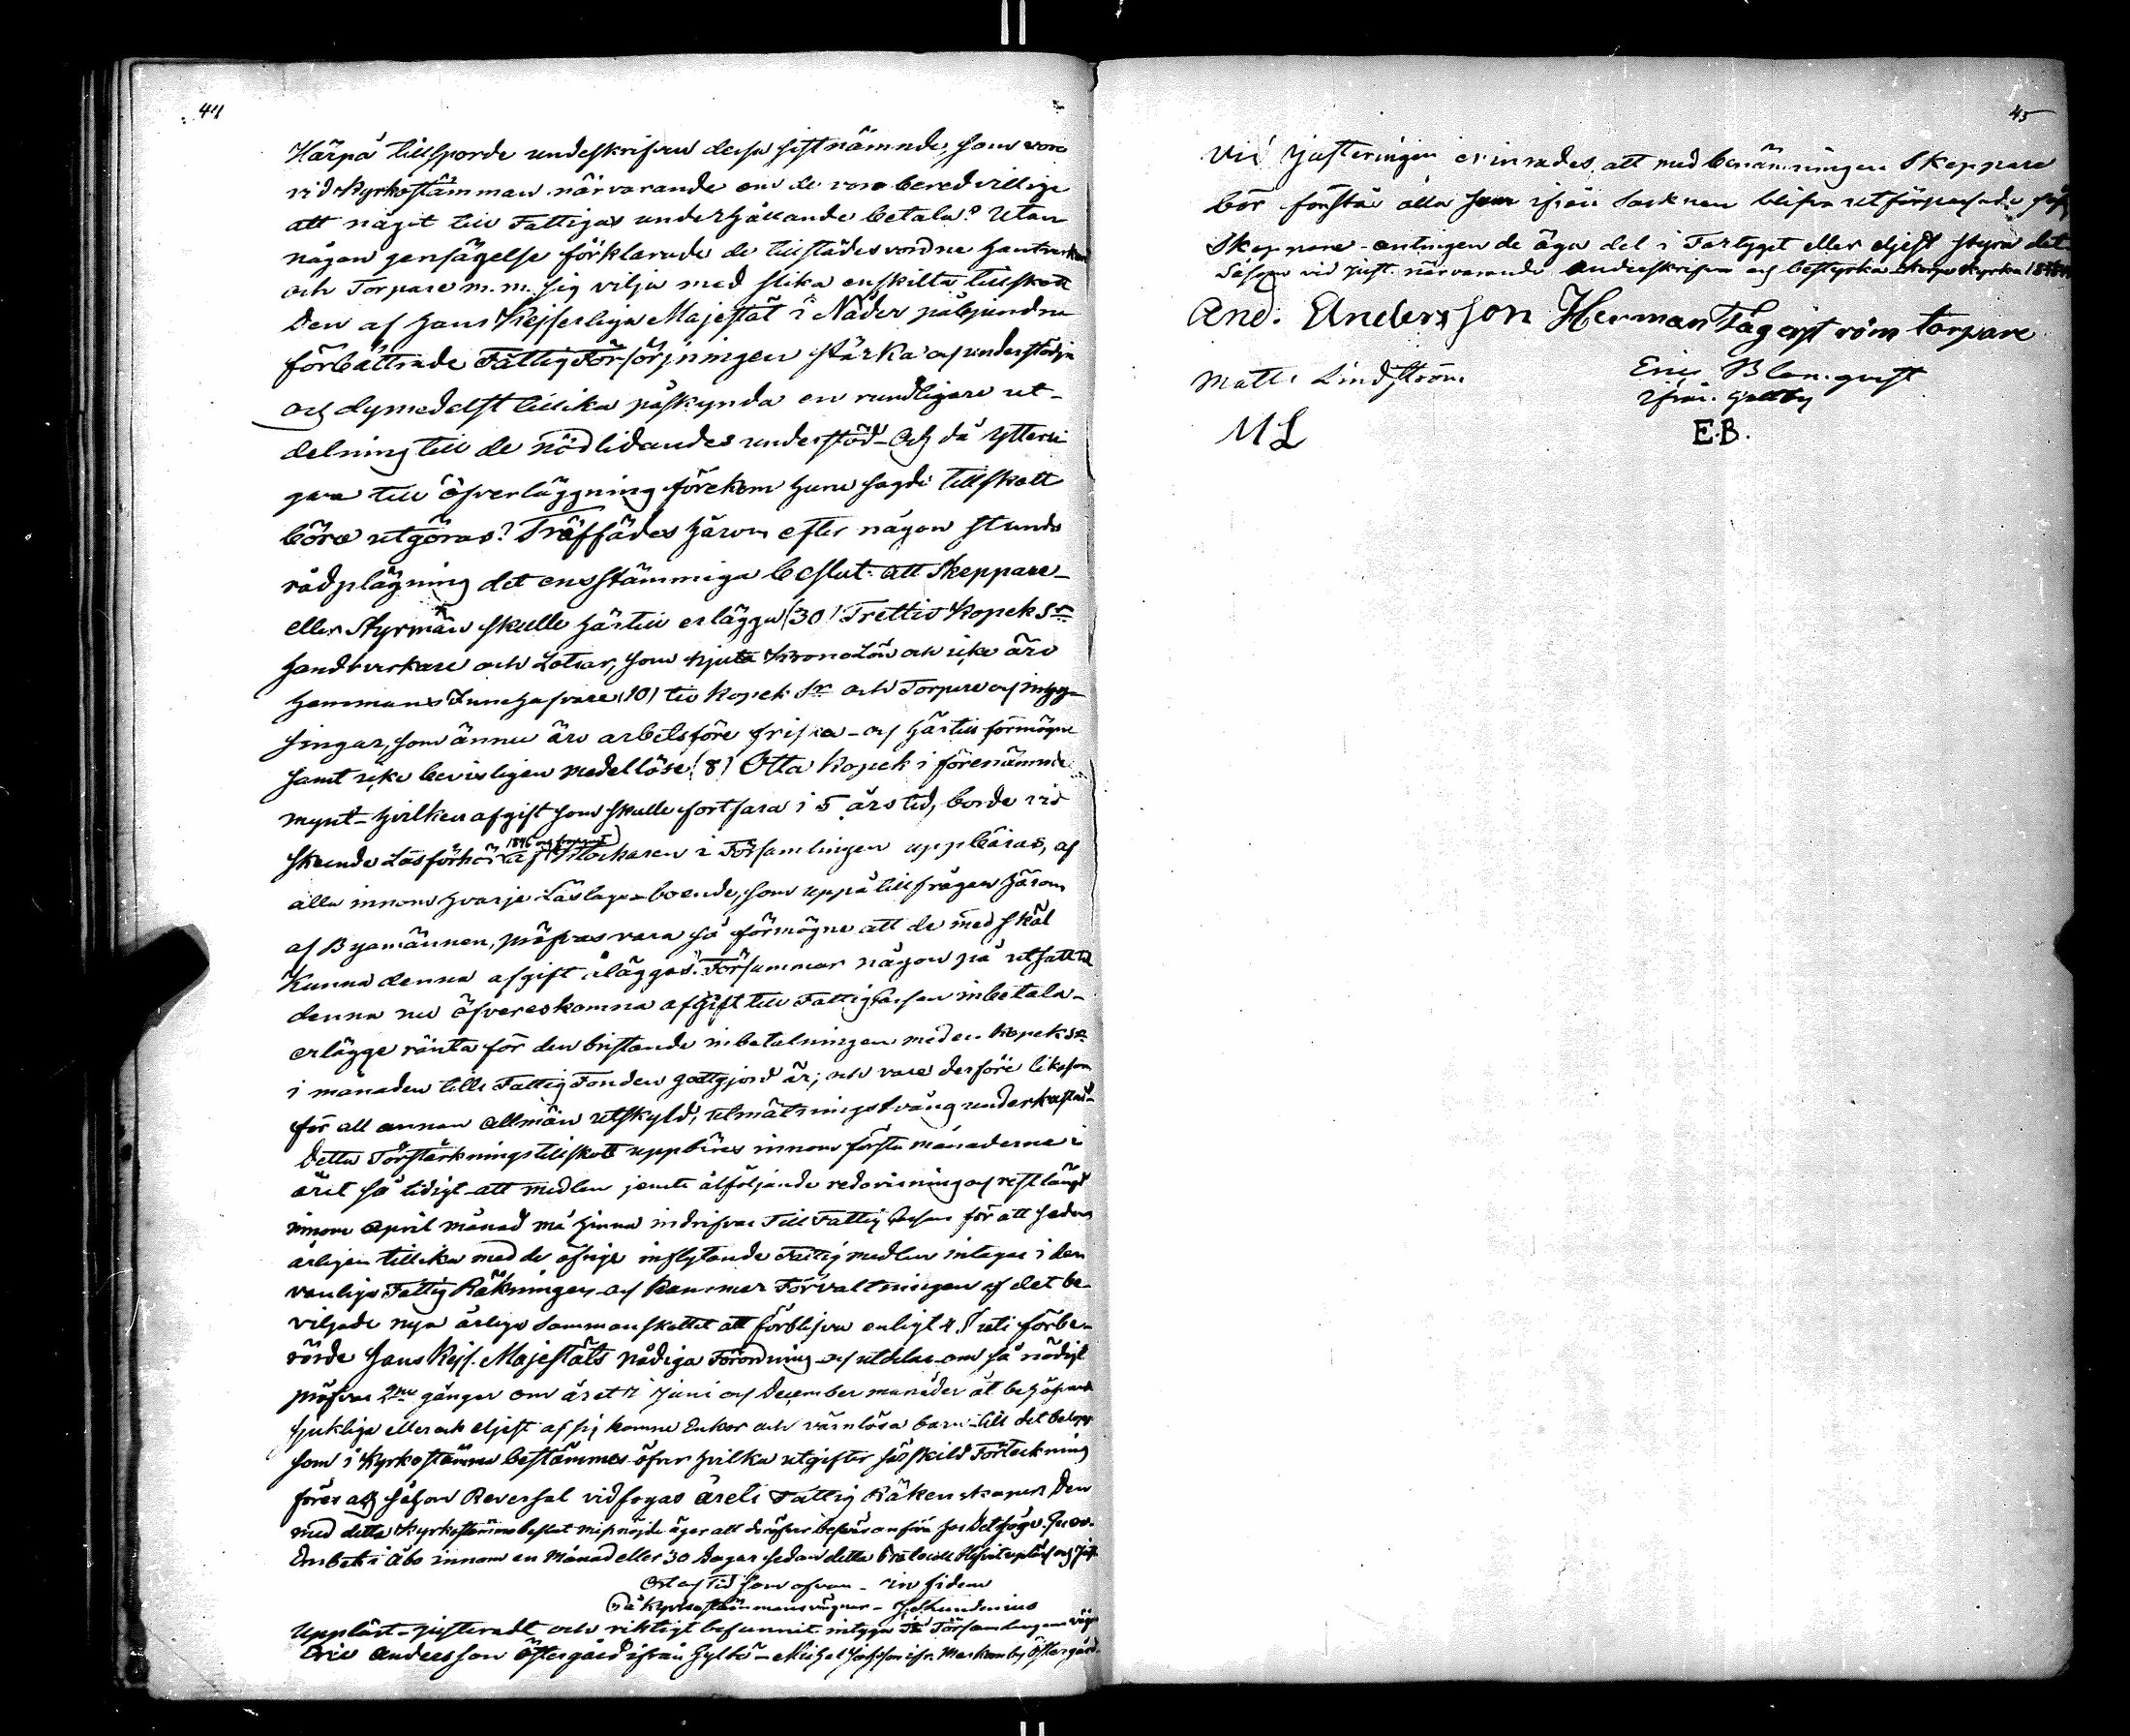 44
Härpå tillsporde undeskrifven dessa sistnämnde, som voro
vid Kyrkostämman närvarande om de voro beredvillige
att något till Fattigas underhållande betala? Utan
någon gensägelse förklarade de tillstädes vordne Hantverkare
och Torpare m.m. sig vilja med slika enskilta tillskott
den af Hans Kejserliga Majestät i Nåder påbjudna
förbättrade Fattig Försörjningen stärka och understödja
och dymedelst tillika påskynda en rundligare ut-
delning till de nödlidandes understöd - Och då ytterli
gare till öfverläggning förekom huru sagde tillskott
böra utgöras? Träffades härom efter någon stunds
rådplägning det enstämmiga beslut: att Skeppare-
eller Styrmän skulle härtill erlägga (30) Trettio Kopek Sr
handtverkare och Lotsar, som njuta KronoLön och icke äro
Hemmans Innehafvare (10) tio kopek Sr och Torpare och inhy-
singar, som ännu äro arbetsföre friska - och härtill förmögne
samt icke bevisligen medellöse (8) Otta Kopek i förenämnde
mynt - hvilken afgift som skulle fortfara i 5 års tid, borde vid
skeende Läsförhör 1846 af Klockaren i Församlingen uppbäras, af
alla innom hvarje Läslag boende, som uppå tillfrågan härom
af Byamännen, pröfvas vara så förmögne att de med skäl
Kunna denna afgift åläggas. Försummar någon på utsatt tid
denna nu öfverenskomna afgift till Fattig Cassan inbetala -
erlägge ränta för den bristande inbetalningen med en kopek Sr
i månaden tills Fattig Fonden godtgjord är; och vare derföre liksom
för all annan allmän utskyld, utmätningstvång underkastad -
Detta Förstärkningstillskott uppbäres innom första månaderna i
året så tidigt - att medlen jemte åtföljande redovisning och restlängd
innom April månad må hinna indrifvas till Fattig Cassan för att sedan
årligen tillika med de öfrige inflytande Fattigmedlen intagas i den
vanliga Fattig Räkningen och Kommer Förvaltningen af det be-
viljade nya årliga sammanskottet att förblifva enligt 4 § uti förbe-
rörde Hans Kejs. Majestäts nådiga Förordning - och utdelas om så nödigt
pröfvas 2ne gånger om året i Juni och December månader åt behöfvande
sjukliga eller och eljest af sig komne Enkor och värnlösa barn - till det belopp
som i Kyrkostämma bestämmes öfver hvilka utgifter särskild Förteckning
föres och såsom Reversal vidfogas årets Fattig Räkenskaper. Den
med detta Kyrkostämmobeslut missnöjde äger att deröfver besvär anföra hos Det höge. Guv.
Embetet i Åbo innom en månad eller 30 dagar sedan detta Protocoll blifvit upläst och just.
Ort och Tid som ofvan - in fidem
På Kyrkostämmans vägnar -
Uppläst - justeradt och riktigt befunnit intyga På Församlingens vägnar
Eric Andersson Östergård ifrån Hyltö -
45
Vid Justeringen erinrades, att med benämningen Skeppare
bör förstås alla som ifrån Socknen blifva utförpassade så som
Skeppare - antingen de äga del i Fartyget eller eljest styra det
Såsom vid just. närvarande underskrifva och bestyrka
And. Andersson Herman Lägerström torpare
Matts Lindström Eric Blomqvist
ifrån
ML E.B.